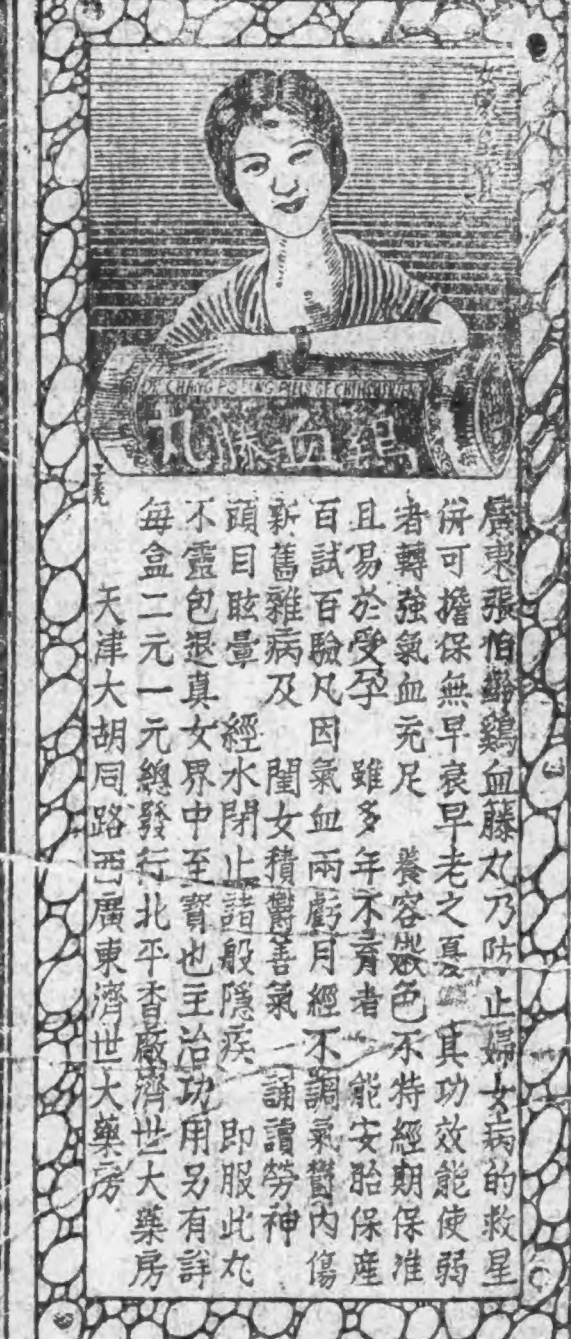 CHANG PO LING PILLS OF
鷄血籐丸
廣東張伯齡鷄血籐丸乃防止婦女病的救星
併可擔保無早衰早老之憂 其功效能使弱
者轉強氣血充足 養容嫩色不特經期保准
且易於受孕 雖多年不育者 能安胎保產
百試百驗凡因氣血兩虧月經不調氣鬱內傷
新舊雜病及 閨女積鬱善氣 誦讀勞神
頭目眩暈 經水閉止諸般隱疾 即服此丸
不靈包退真女界中至寶也主治功用另有詳
每盒二元一元總發行北平香廠濟世大藥房
天津大胡同路西廣東濟世大藥房